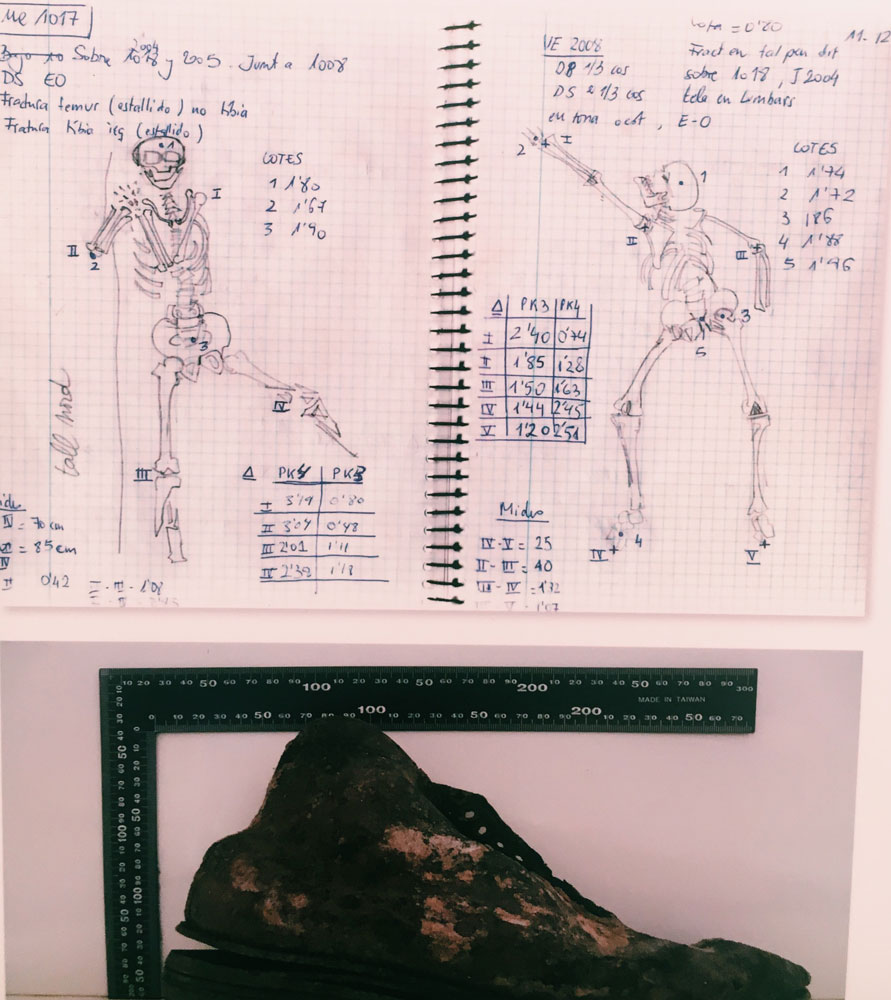 1017
Sobre 1018 y 2005. Junt a 1008
2004
DS EO
Fractura femur (estallido) no tibia
Fractura tibia izq (estallido)
COTES
1 1'80
2 1'67
3 1'90
1
I
II
2
3
IV
III
tall nord
Δ PK4 PK3
I 3'19 0'80
II 3'07 0'48
III 2'01 1'11
IV 2'39 1'18
IV = 70 cm
= 85 cm
IV
0'42
I - III - 1'08
11-12
= 0'20
VE 2008
DP 1/3 cos
DS 2 1/3 cos
en zona ocat, E-O
Fract en tal pen drt
sobre 1018, I 2004
tela en lumbars
COTES
1 1'74
2 1'72
3 186
4 1'88
5 1'96
2
I
1
II
III
3
5
4
IV
V
Δ PK3 PK4
I 2'40 0'74
II 1'85 1'28
III 1'50 1'63
IV 1'44 2'45
V 1'20 2'51
Mides
IV-V = 25
II-III = 40
III-IV = 1'32
V - 1'07
10 20 30 40 50 60 70 80 90 100 10 20 30 40 50 60 70 80 90 200 10 20 30 40 50 60 70 80 90 300
MADE IN TAIWAN
0 10 20 30 40 50 60 70 80 90 100 10 20 30 40 50 60 70 80 90 200 10 20 30 40 50 60 70